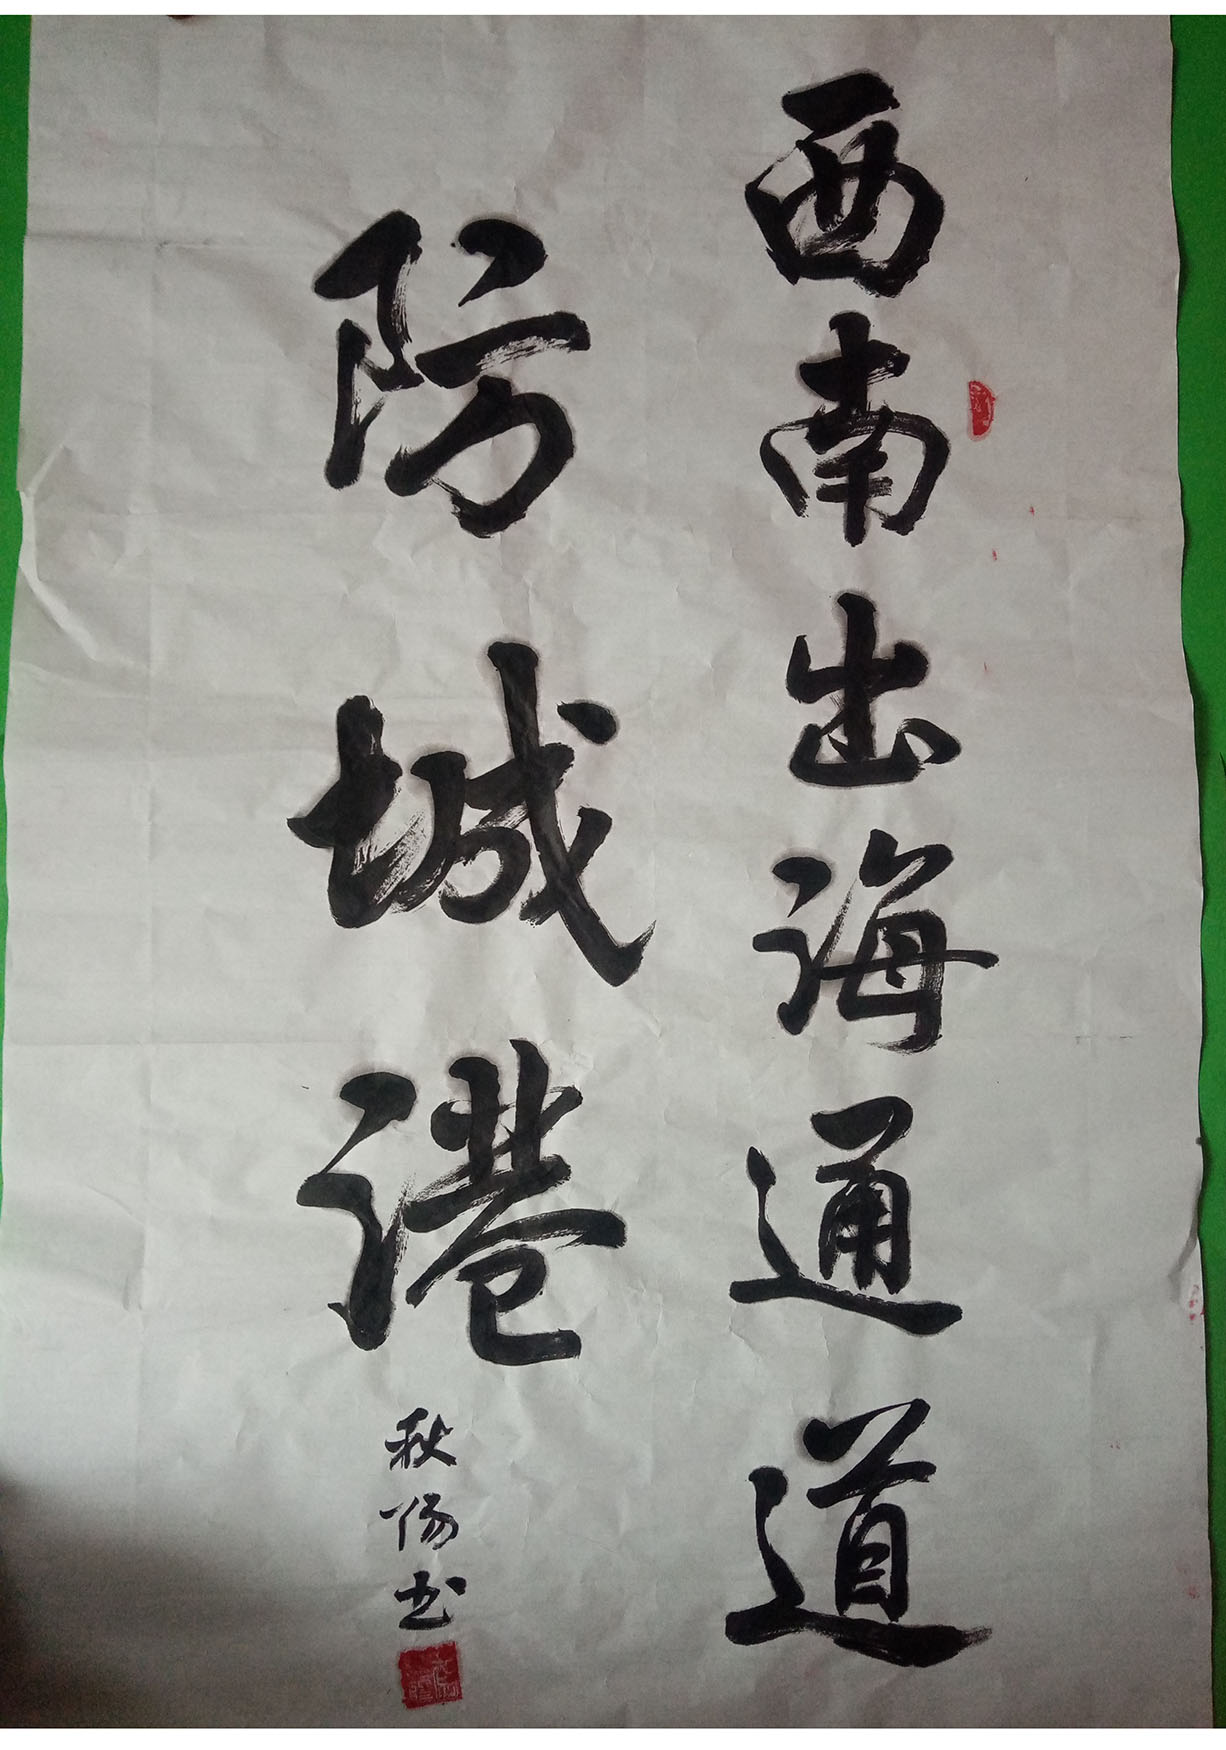 西南出海通道
防城港
秋阳书